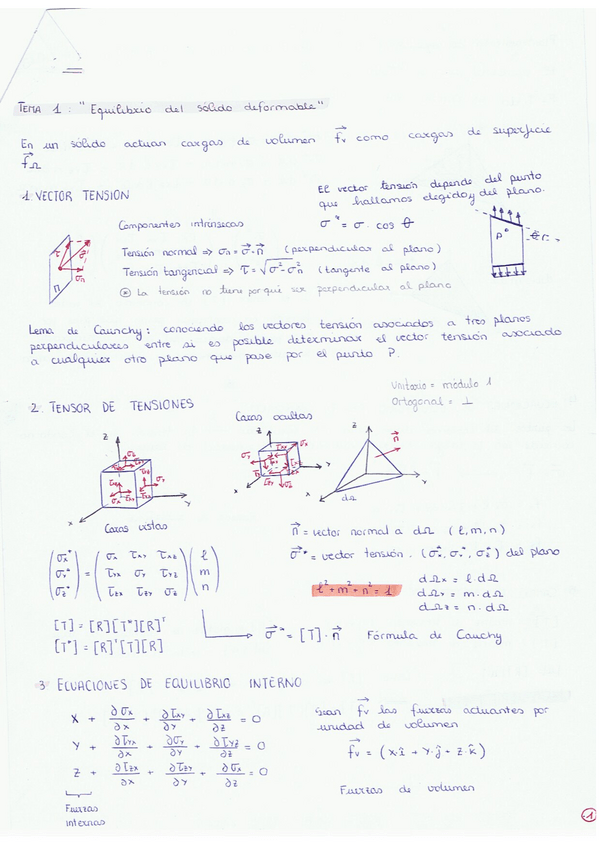 TEMA 1 : "Equilibrio del sólido deformable"
En un sólido actuan cargas de volumen f⃗v como cargas de superficie
f⃗Ω
1. VECTOR TENSION
El vector tensión depende del punto
que hallamos elegido y del plano.
σ* = σ · cos θ
Componentes intrínsecas
Tensión normal ⇒ σn = σ⃗·n⃗ (perpendicular al plano)
Tensión tangencial ⇒ τ = √σ² - σ²n (tangente al plano)
* La tensión no tiene por qué ser perpendicular al plano
τ σ⃗ σn Π
P
Lema de Caunchy: conociendo los vectores tensión asociados a tres planos
perpendiculares entre si es posible determinar el vector tensión asociado
a cualquier otro plano que pase por el punto P.
Unitario = módulo 1
Ortogonal = ⊥
2. TENSOR DE TENSIONES
Caras ocultas
z y x
Caras vistas
z n⃗ dΩ x y
n⃗ = vector normal a dΩ (l, m, n)
σ⃗* = vector tensión. (σx*, σy*, σz*) del plano
(σx*) (σx τxy τxz) (l)
(σy*) = (τyx σy τyz) (m)
(σz*) (τzx τzy σz) (n)
l² + m² + n² = 1
dΩx = l dΩ
dΩy = m · dΩ
dΩz = n · dΩ
[T] = [R][T*][R]ᵀ
[T*] = [R]ᵀ[T][R]
σ⃗* = [T] · n⃗ Fórmula de Cauchy
3. ECUACIONES DE EQUILIBRIO INTERNO
X + ∂σx/∂x + ∂τxy/∂y + ∂τxz/∂z = 0
Y + ∂τyx/∂x + ∂σy/∂y + ∂τyz/∂z = 0
Z + ∂τzx/∂x + ∂τzy/∂y + ∂σx/∂z = 0
Fuerzas
internas
Sean f⃗v las fuerzas actuantes por
unidad de volumen
f⃗v = (X·î + Y·ĵ + Z·k̂)
Fuerzas de volumen
1